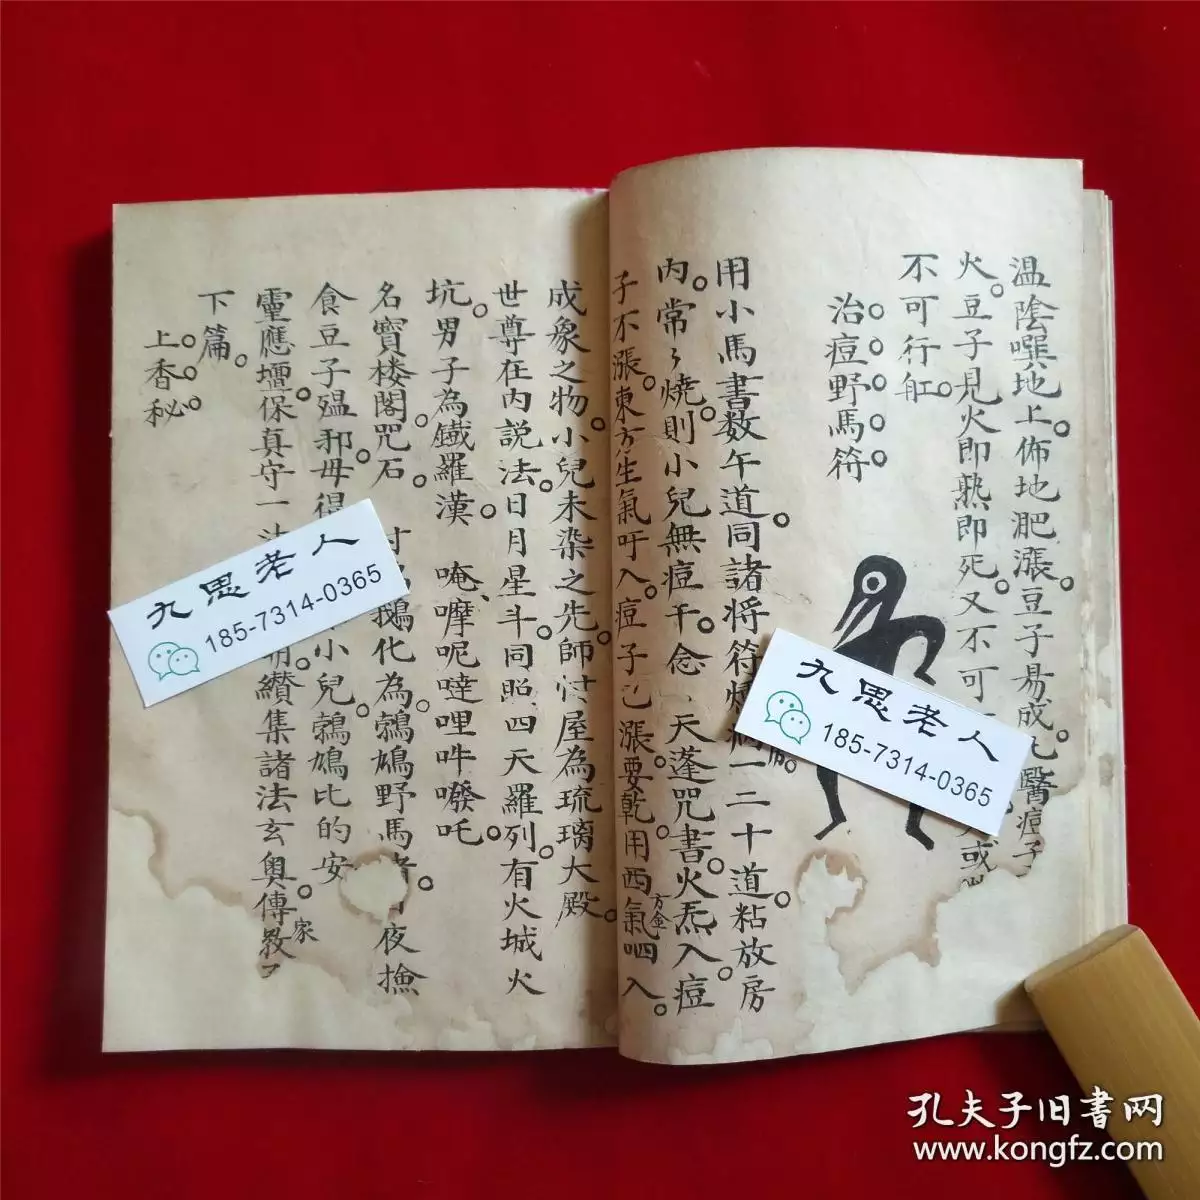 温陰噀地上。佈地肥漲。豆子易成。凡醫痘子
火。豆子見火即熟即死。又不可
不可行缸。
治痘野馬符
用小馬書数午道。同諸將符燒 一二十道。粘放房
内。常々燒則小兒無痘干。念 天蓬咒書。火炁入。痘
子不漲。東方生氣吁入。痘子已漲。要乾。用西方金氣呬入。
成象之物。小兒未染之先。師 屋為琉璃大殿。
世尊在内説法。日月星斗。同照四天。羅列。有火城火
坑。男子為鐵羅漢。 唵嚤呢噠哩吽癈吒。
名寶楼閣咒。石 鵝化為。鶉鳩野馬 夜撿
食豆子。瘟邪毋得 小兒。鶉鳩比的安
靈應壇。保真守一 纘集諸法玄奧。傳家教
下篇。
上香秘
九思老人
185-7314-0365
九思老人
185-7314-0365
孔夫子旧書网
www.kongfz.com